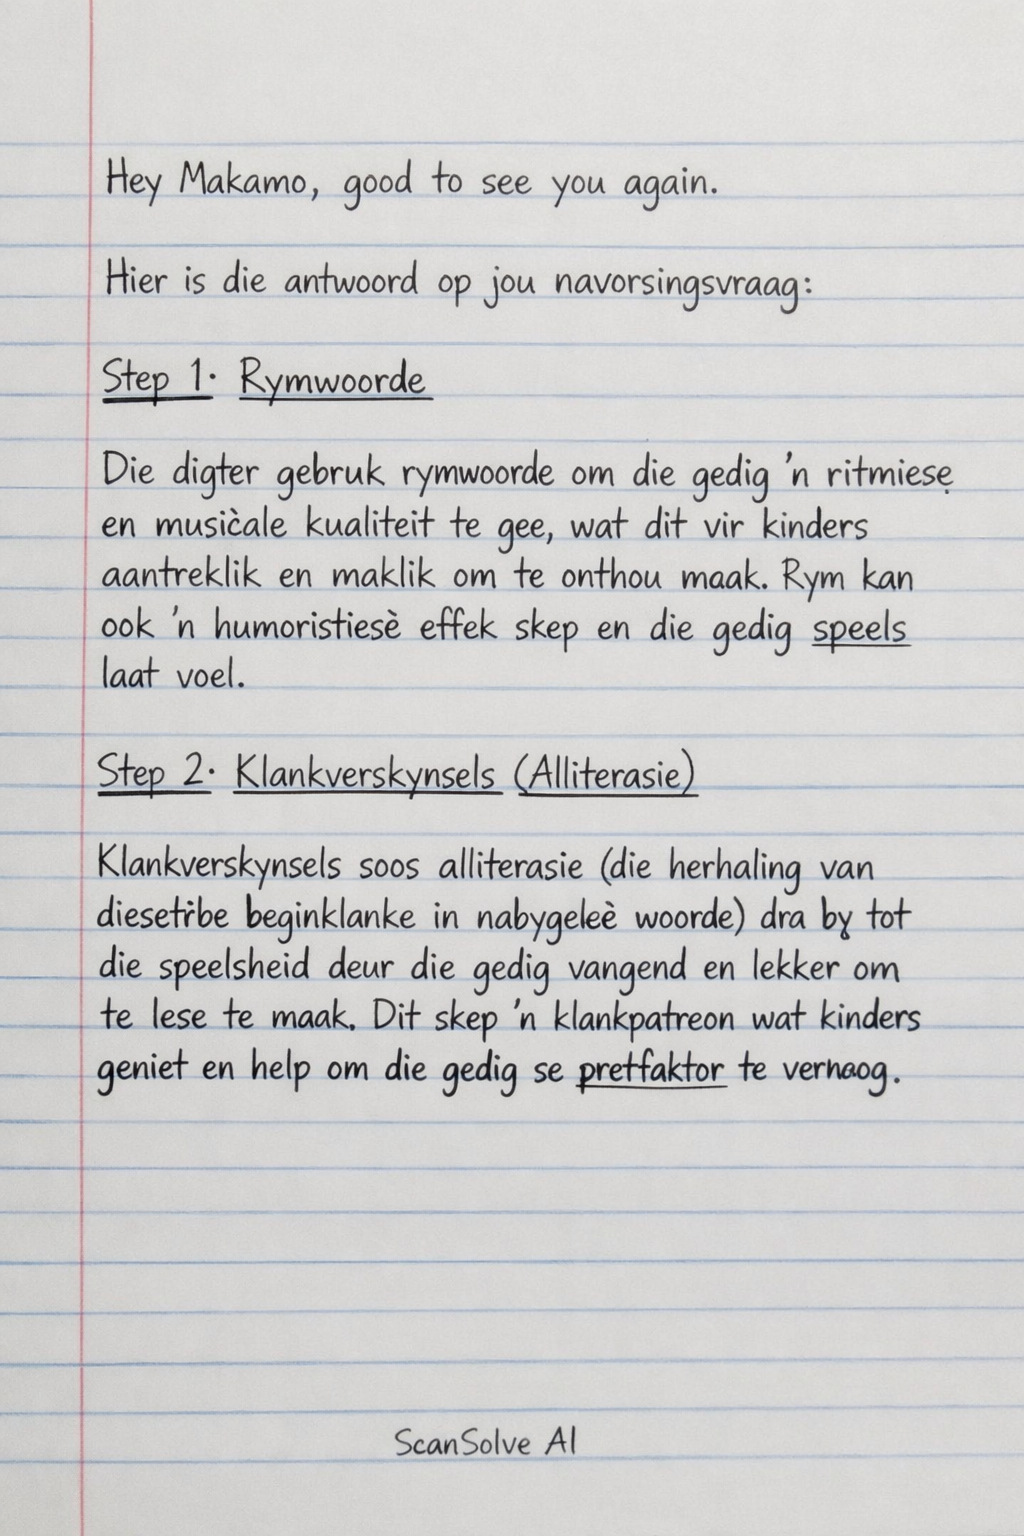 Hey Makamo, good to see you again.
Hier is die antwoord op jou navorsingsvraag:
Step 1. Rymwoorde
Die digter gebruk rymwoorde om die gedig 'n ritmiese
en musicale kualiteit te gee, wat dit vir kinders
aantreklik en maklik om te onthou maak. Rym kan
ook 'n humoristiesè effek skep en die gedig speels
laat voel.
Step 2. Klankverskynsels (Alliterasie)
Klankverskynsels soos alliterasie (die herhaling van
beginklanke in nabygeleè woorde) dra by tot
die speelsheid deur die gedig vangend en lekker om
te lese te maak. Dit skep 'n klankpatreon wat kinders
geniet en help om die gedig se pretfaktor te
ScanSolve AI